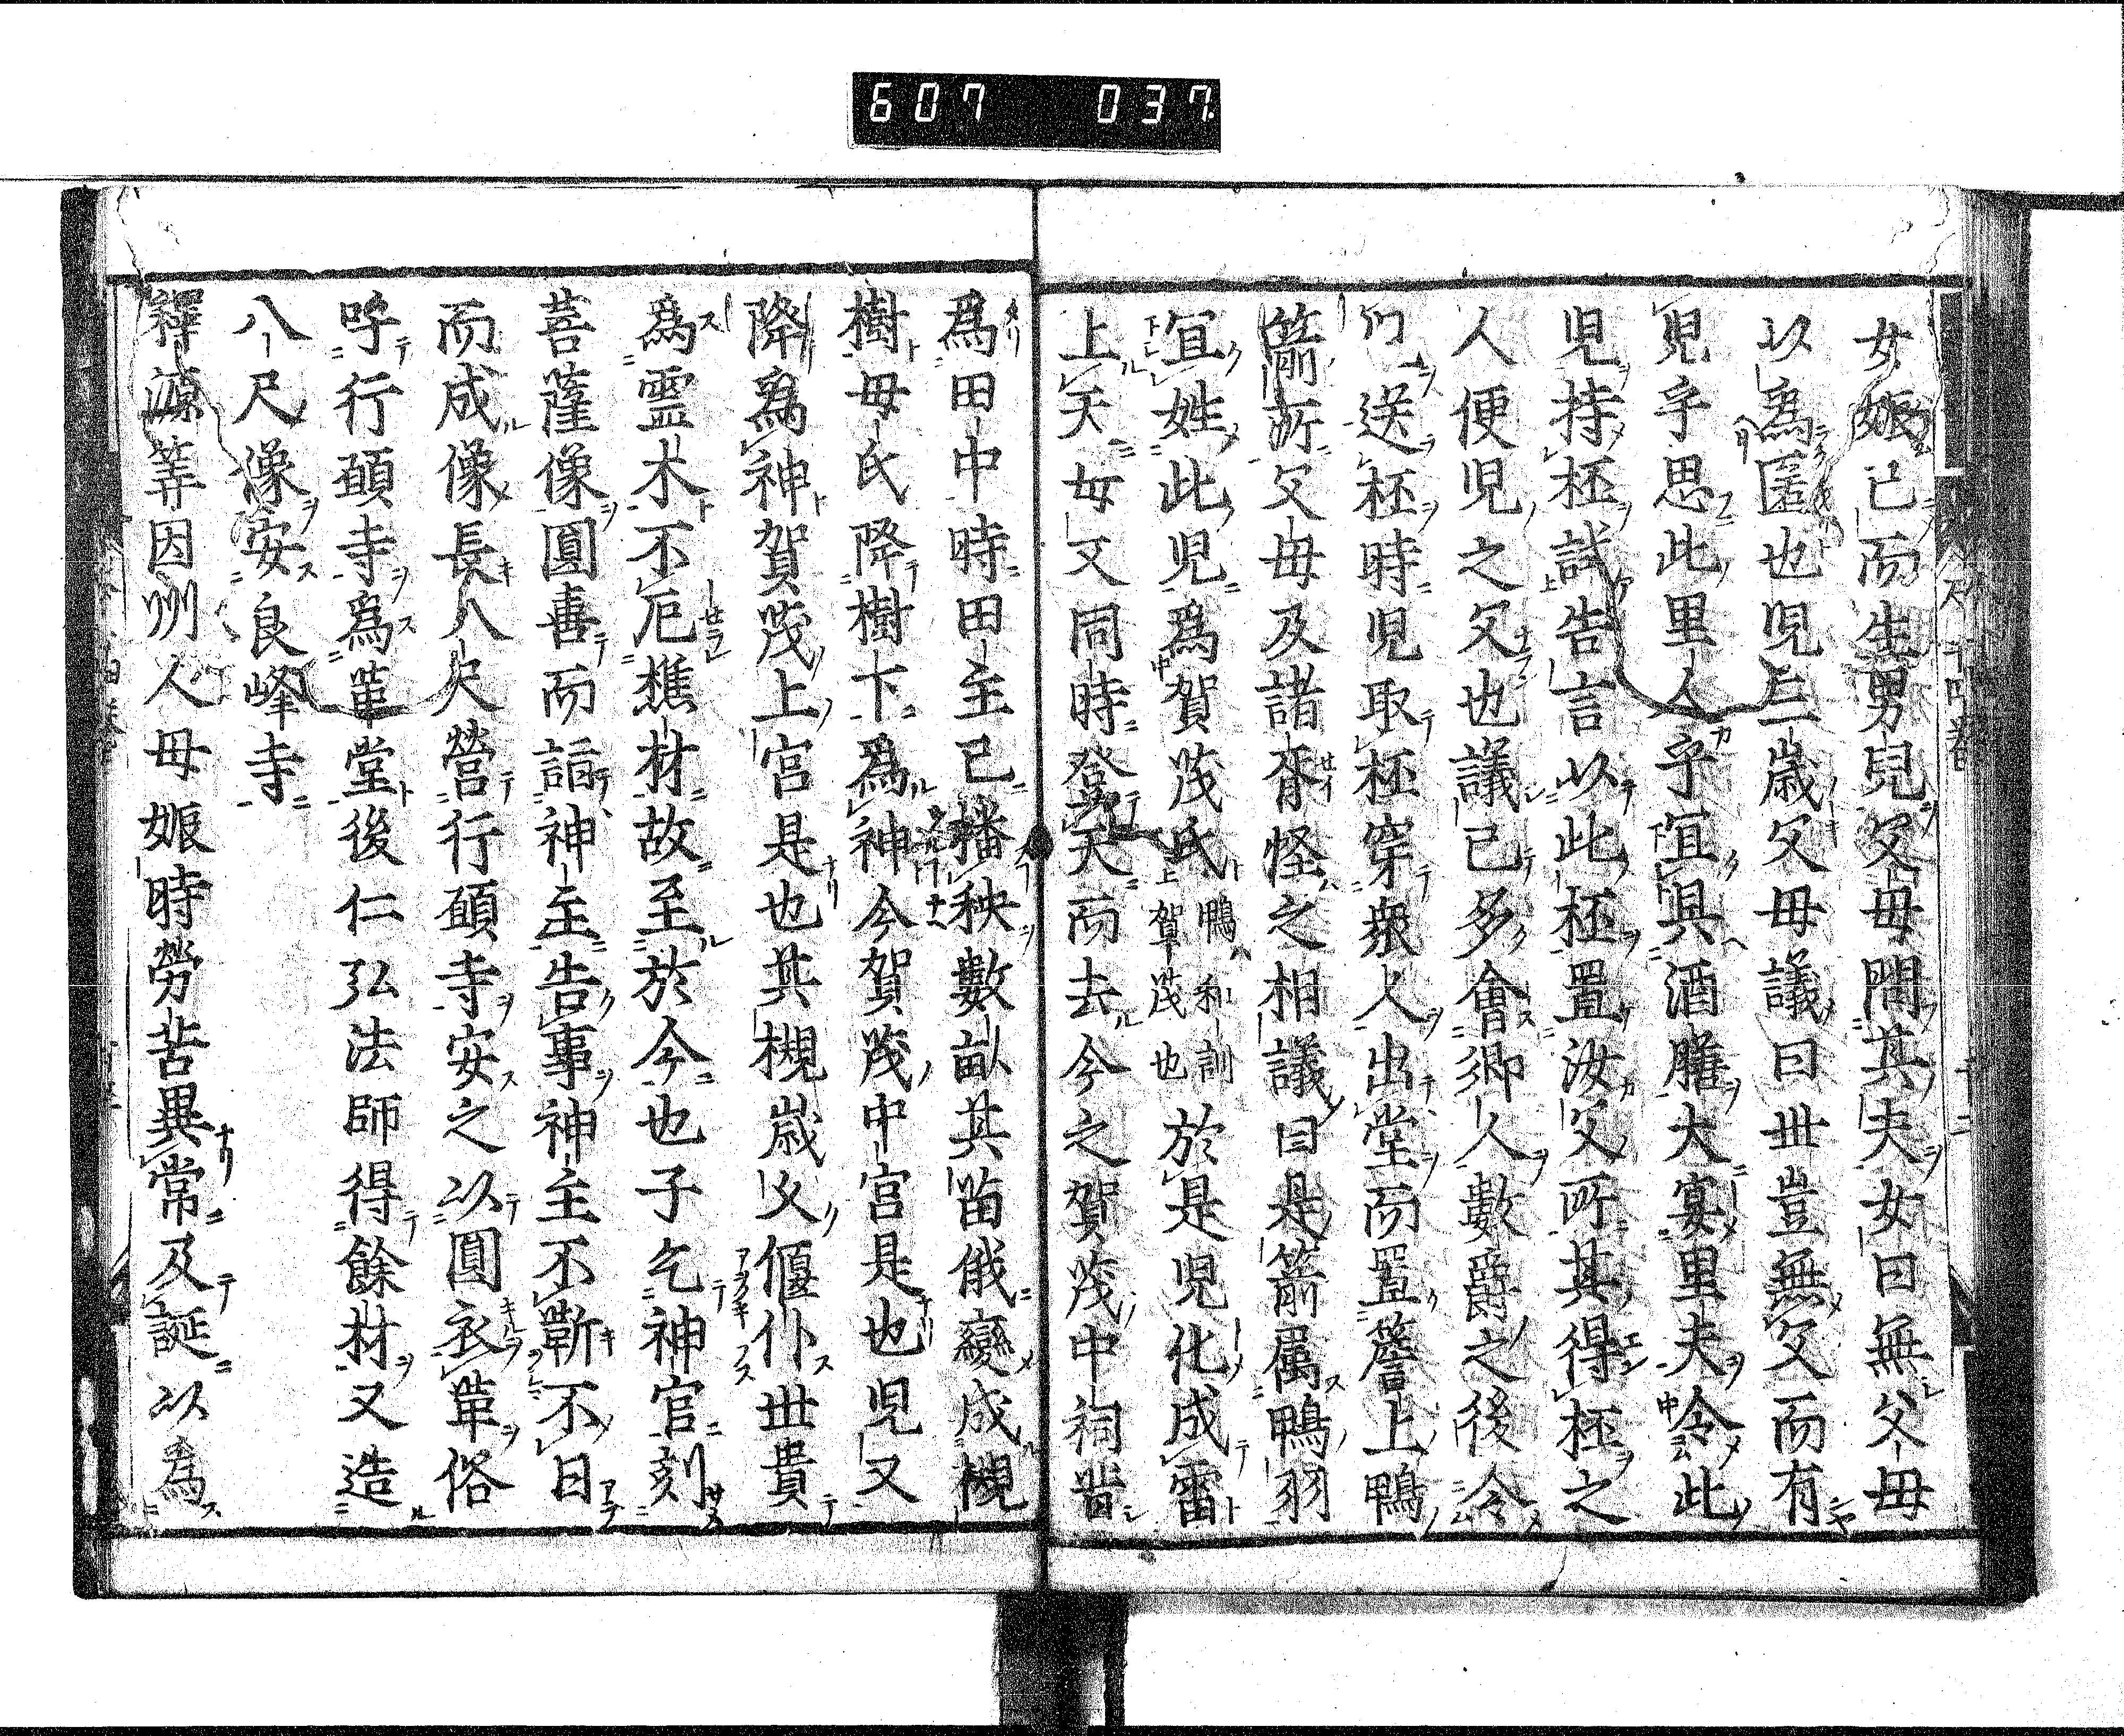 607 037
女娠已而生男兒父母問其夫女曰無父母
以為匿也児三歳父母議曰世豈無父而有
兒乎思此里人乎宜具酒膳大宴里夫令此
児持坏試告言以此坏置汝父所其得坏之
人便児之父也議已多會郷人數爵之後令
送坏時児取坏穿衆人出堂而置簷上鴨
箭所父母及諸胥怪之相議曰是箭属鴨羽
宜姓此児為賀茂氏鴨和訓賀茂也於是児化成雷
上天女又同時登天而去今之賀茂中祠皆
為田中時田主已播秧數畝其苗俄變成槻
樹母氏降樹下為神今賀茂中宮是也児又
降為神賀茂上宮是也其槻歳久偃仆世貴
為霊木不厄樵材故至於今也子乞神官刻
菩薩像圓喜而詣神主告事神主不靳不日
而成像長八尺營行願寺安之以圓衣革俗
呼行願寺為革堂後仁弘法師得餘材又造
八尺像安良峰寺
釋源筭因州人母娠時勞苦異常及誕以為